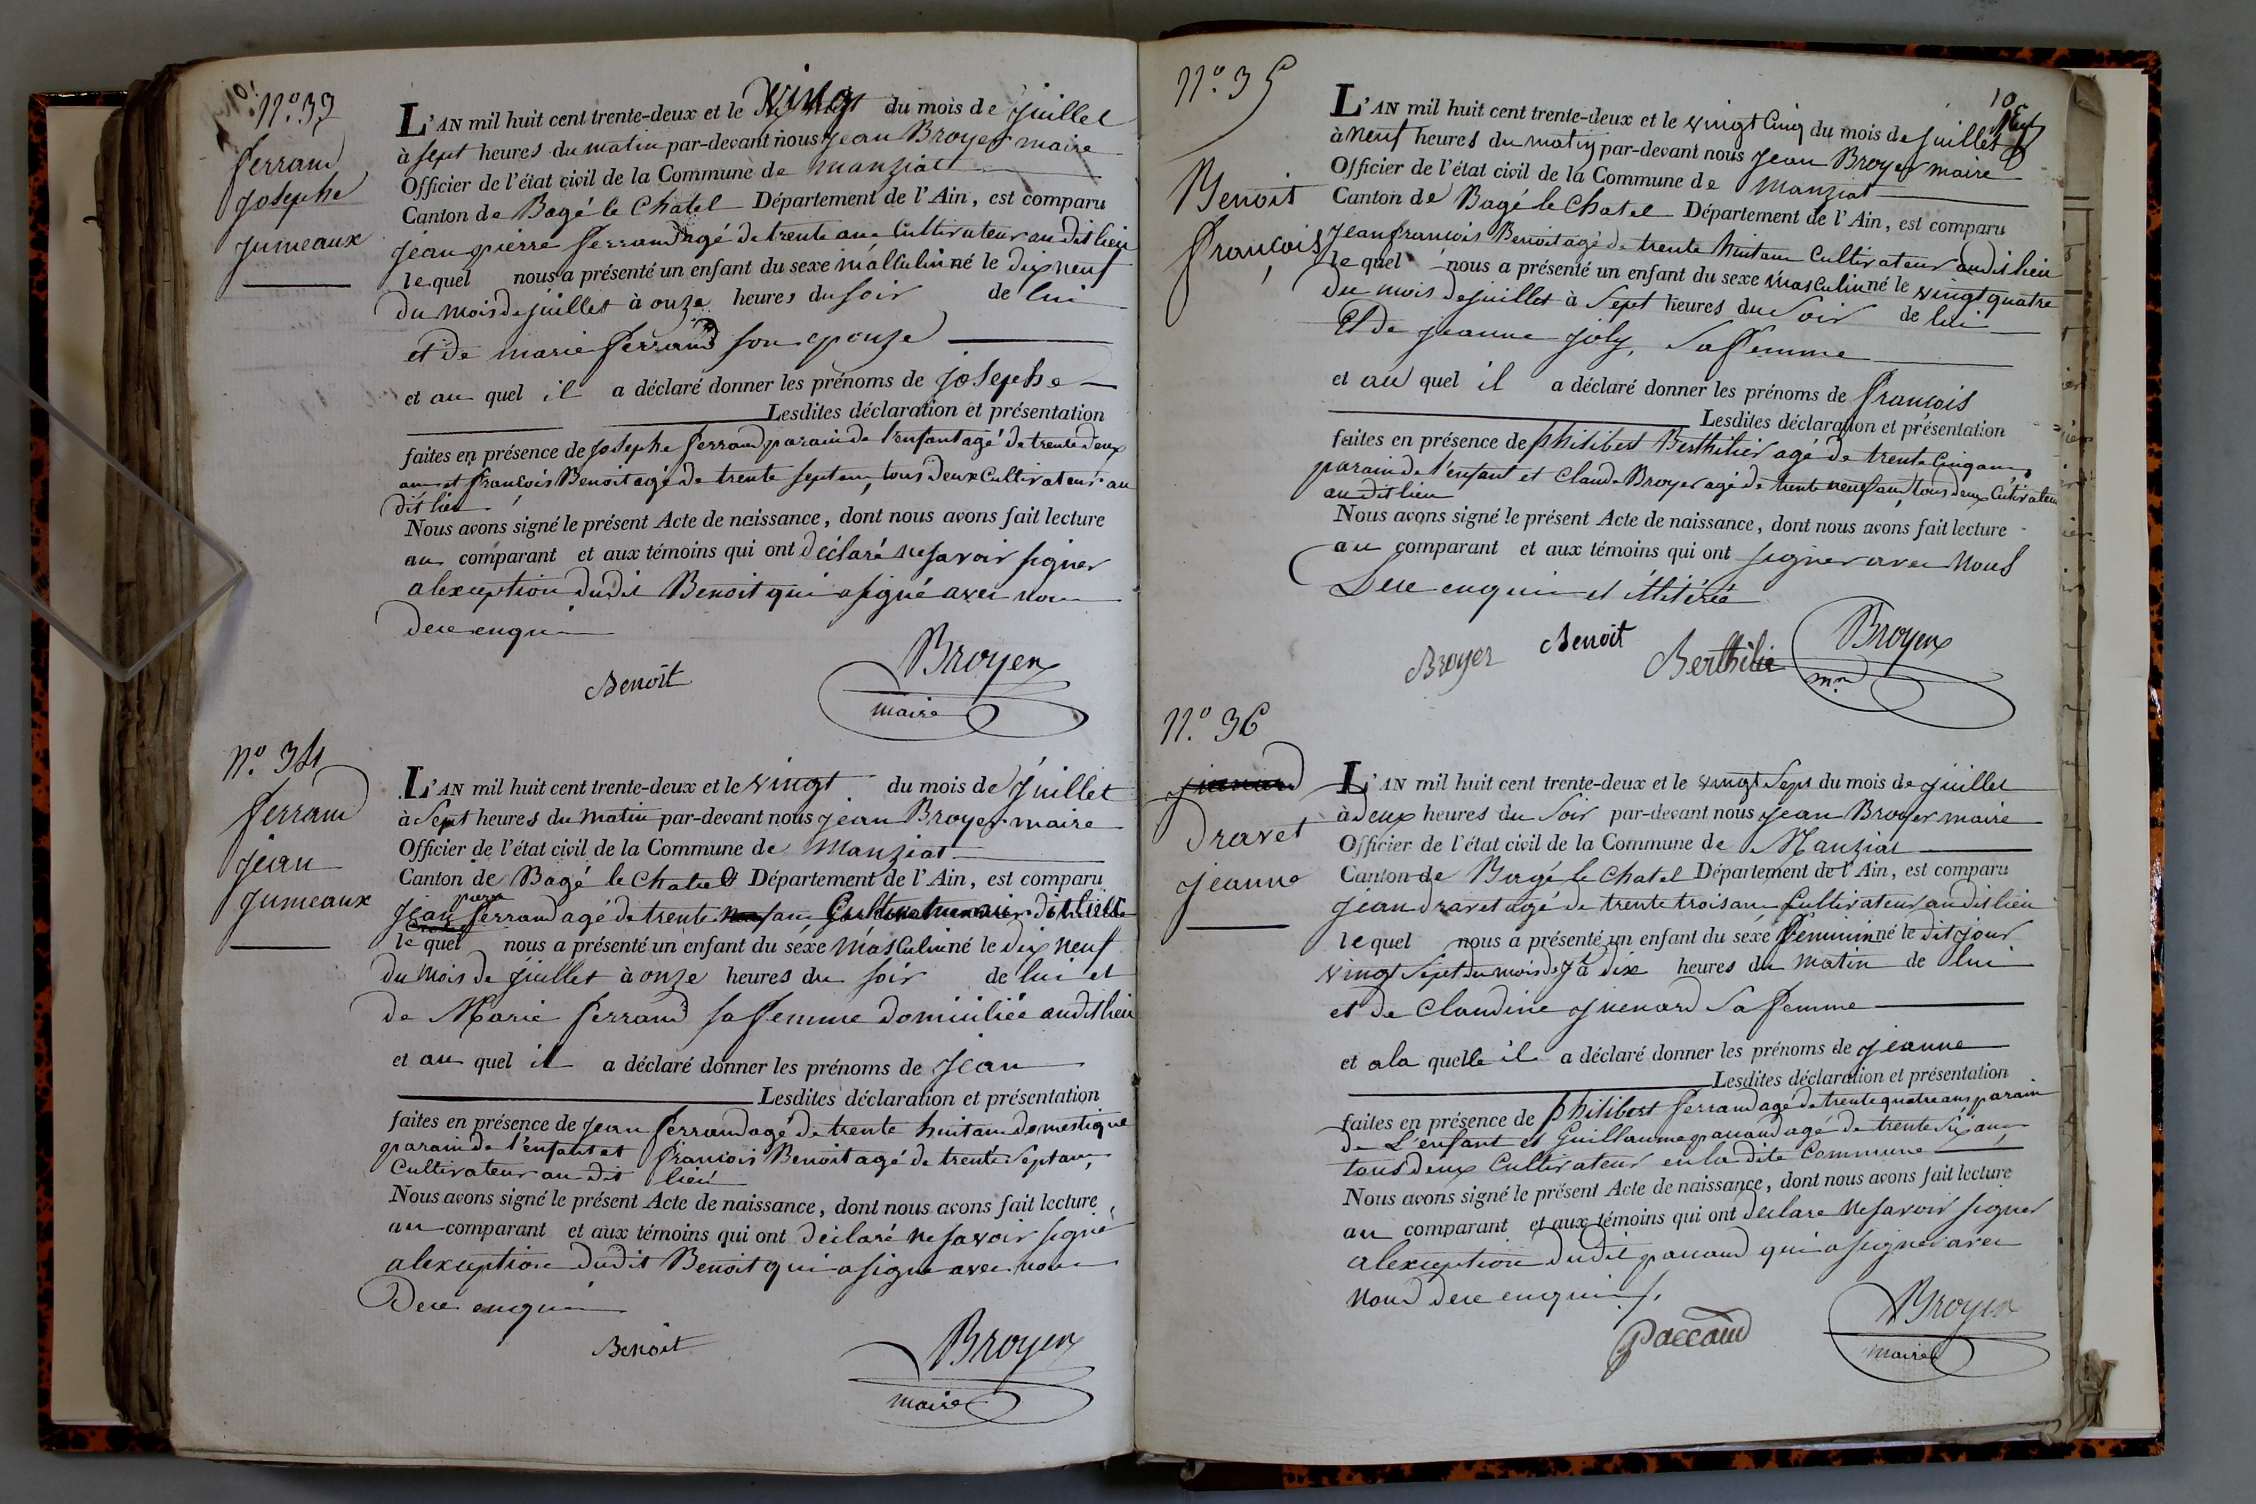 N.º 33
ferrand
josephe
jumeaux
L'AN mil huit cent trente-deux et le vingt du mois de juillet
à sept heures du matin par-devant nous jean Broyer maire
Officier de l'état civil de la Commune de manziat
Canton de Bagé le Chatel Département de l'Ain, est comparu
jean pierre ferrand agé de trente ans Cultivateur au dit lieu
le quel nous a présenté un enfant du sexe masculin né le dix neuf
du mois de juillet à onze heures du soir de lui
et de marie ferrand son epouse
et au quel il a déclaré donner les prénoms de josephe
Lesdites déclaration et présentation
faites en présence de josephe ferrand parain de l'enfant agé de trente deux
ans et francois Benoit agé de trente sept ans, tous deux Cultivateurs au
dit lieu
Nous avons signé le présent Acte de naissance, dont nous avons fait lecture
au comparant et aux témoins qui ont déclaré ne savoir signer
alexception dudit Benoit qui a signé avec nous
de ce enquis
Benoit Broyer
maire
N.º 34
ferrand
jean
jumeaux
L'AN mil huit cent trente-deux et le vingt du mois de juillet
à sept heures du matin par-devant nous jean Broyer maire
Officier de l'état civil de la Commune de manziat
Canton de Bagé le Chatel Département de l'Ain, est comparu
jean ferrand agé de trente ans Cultivateur au dit lieu
le quel nous a présenté un enfant du sexe masculin né le dix neuf
du mois de juillet à onze heures du soir de lui et
de Marie ferrand sa femme domiciliée audit lieu
et au quel il a déclaré donner les prénoms de jean
Lesdites déclaration et présentation
faites en présence de jean ferrand agé de trente huit ans domestique
parain de l'enfant et francois Benoit agé de trente sept ans,
Cultivateur au dit lieu
Nous avons signé le présent Acte de naissance, dont nous avons fait lecture
au comparant et aux témoins qui ont déclaré ne savoir signé
alexception dudit Benoit qui a signé avec nous
De ce enquis
Benoit Broyer
maire
N.º 35
Benoit
françois
10
L'AN mil huit cent trente-deux et le vingt Cinq du mois de juillet
à neuf heures du matin par-devant nous jean Broyer maire
Officier de l'état civil de la Commune de Manziat
Canton de Bagé le Chatel Département de l'Ain, est comparu
jean francois Benoit agé de trente huit ans Cultivateur audit lieu
le quel nous a présenté un enfant du sexe masculin né le vingt quatre
du mois de juillet à sept heures du Soir de lui
Et de jeanne joly, Sa femme
et au quel il a déclaré donner les prénoms de francois
Lesdites déclaration et présentation
faites en présence de philibert Berthilier agé de trente Cinq ans
parain de l'enfant et Claude Broyer agé de trente neuf ans, tous deux Cultivateur
au dit lieu
Nous avons signé le présent Acte de naissance, dont nous avons fait lecture
au comparant et aux témoins qui ont signer avec nous
De ce enquis et
Broyer Benoit Berthilie Broyer
N.º 36
Dravet
jeanne
L'AN mil huit cent trente-deux et le vingt Sept du mois de juillet
à deux heures du Soir par-devant nous jean Broyer maire
Officier de l'état civil de la Commune de Manziat
Canton de Bagé le Chatel Département de l'Ain, est comparu
jean dravet agé de trente trois ans Cultivateur audit lieu
le quel nous a présenté un enfant du sexe féminin né le dit jour
vingt Sept du mois de J à dix heures du matin de lui
et de Claudine juenard Sa femme
et a la quelle il a déclaré donner les prénoms de jeanne
Lesdites déclaration et présentation
faites en présence de philibert ferrand agé de trente quatre ans parain
de L'enfant et Guillaume pacaud agé de trente Six ans
tous deux Cultivateur en la dite Commune
Nous avons signé le présent Acte de naissance, dont nous avons fait lecture
au comparant et aux témoins qui ont déclare ne savoir signer
alexception dudit pacaud qui a signer avec
nous de ce enquis
Paccaud Broyer
maire